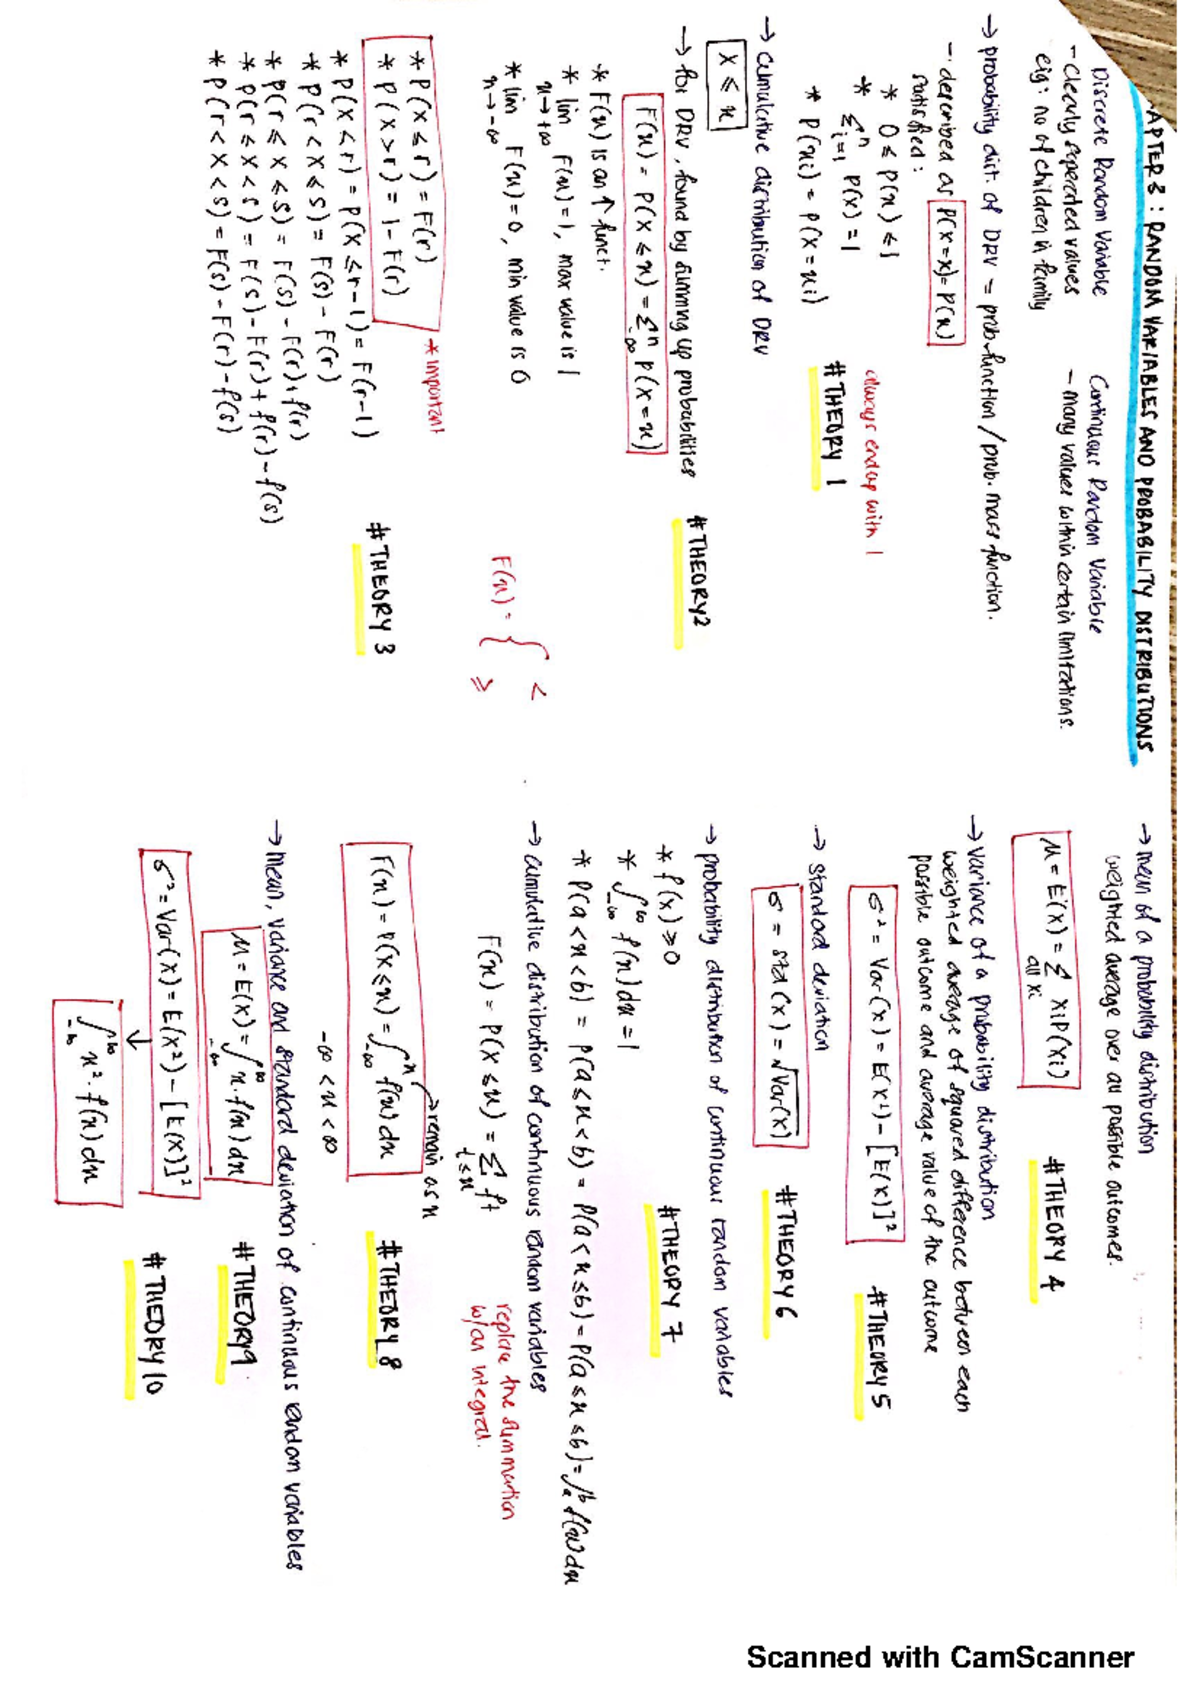 APTER 3 : RANDOM VARIABLES AND PROBABILITY DISTRIBUTIONS
Discrete Random Variable
- clearly seperated values
eig : no of children in family
Continuous Random Variable
- many values within certain limitations.
→ probability dist. of DRV = prob. function / prob. mass function.
- described as P(X=x) = P(x)
satisfied :
* 0 ≤ P(x) ≤ 1
* Σⁿᵢ₌₁ P(x) = 1
always end up with 1
* P(xi) = P(X = xi)
#THEORY 1
→ cumulative distribution of DRV
X ≤ x
→ for DRV, found by summing up probabilities
#THEORY2
F(x) = P(X ≤ x) = Σⁿ₋∞ P(X=x)
* F(x) is an ↑ funct.
* lim x→+∞ F(x) = 1, max value is 1
* lim x→-∞ F(x) = 0, min value is 0
F(x) = { <
≥
* P(X ≤ r) = F(r)
* P(X > r) = 1 - F(r)
* important
* P(X < r) = P(X ≤ r-1) = F(r-1)
* P(r < X ≤ s) = F(s) - F(r)
* P(r ≤ X ≤ s) = F(s) - F(r) + f(r)
* P(r ≤ X < s) = F(s) - F(r) + f(r) - f(s)
* P(r < X < s) = F(s) - F(r) - f(s)
#THEORY 3
→ mean of a probability distribution
weighted average over all possible outcomes.
μ = E(X) = Σ all xi XiP(Xi)
#THEORY 4
→ Variance of a probability distribution
weighted average of squared difference between each
possible outcome and average value of the outcome
σ² = Var(X) = E(X²) - [E(X)]²
#THEORY 5
→ standard deviation
σ = std(X) = √Var(X)
#THEORY 6
→ probability distribution of continuous random variables
* f(x) ≥ 0
* ∫₋∞^∞ f(x)dx = 1
#THEORY 7
* P(a < x < b) = P(a ≤ x < b) = P(a < x ≤ b) = P(a ≤ x ≤ b) = ∫ₐᵇ f(x)dx
→ cumulative distribution of continuous random variables
F(x) = P(X ≤ x) = Σ t≤x ft
replace the summation
w/an integral.
F(x) = P(X ≤ x) = ∫₋∞ˣ f(x)dx
→ remain as x
-∞ < x < ∞
#THEORY 8
→ mean, variance and standard deviation of continuous random variables
μ = E(X) = ∫₋∞^∞ x·f(x)dx
#THEORY9
σ² = Var(X) = E(X²) - [E(X)]²
#THEORY 10
↓
∫₋∞^+∞ x²·f(x)dx
Scanned with CamScanner